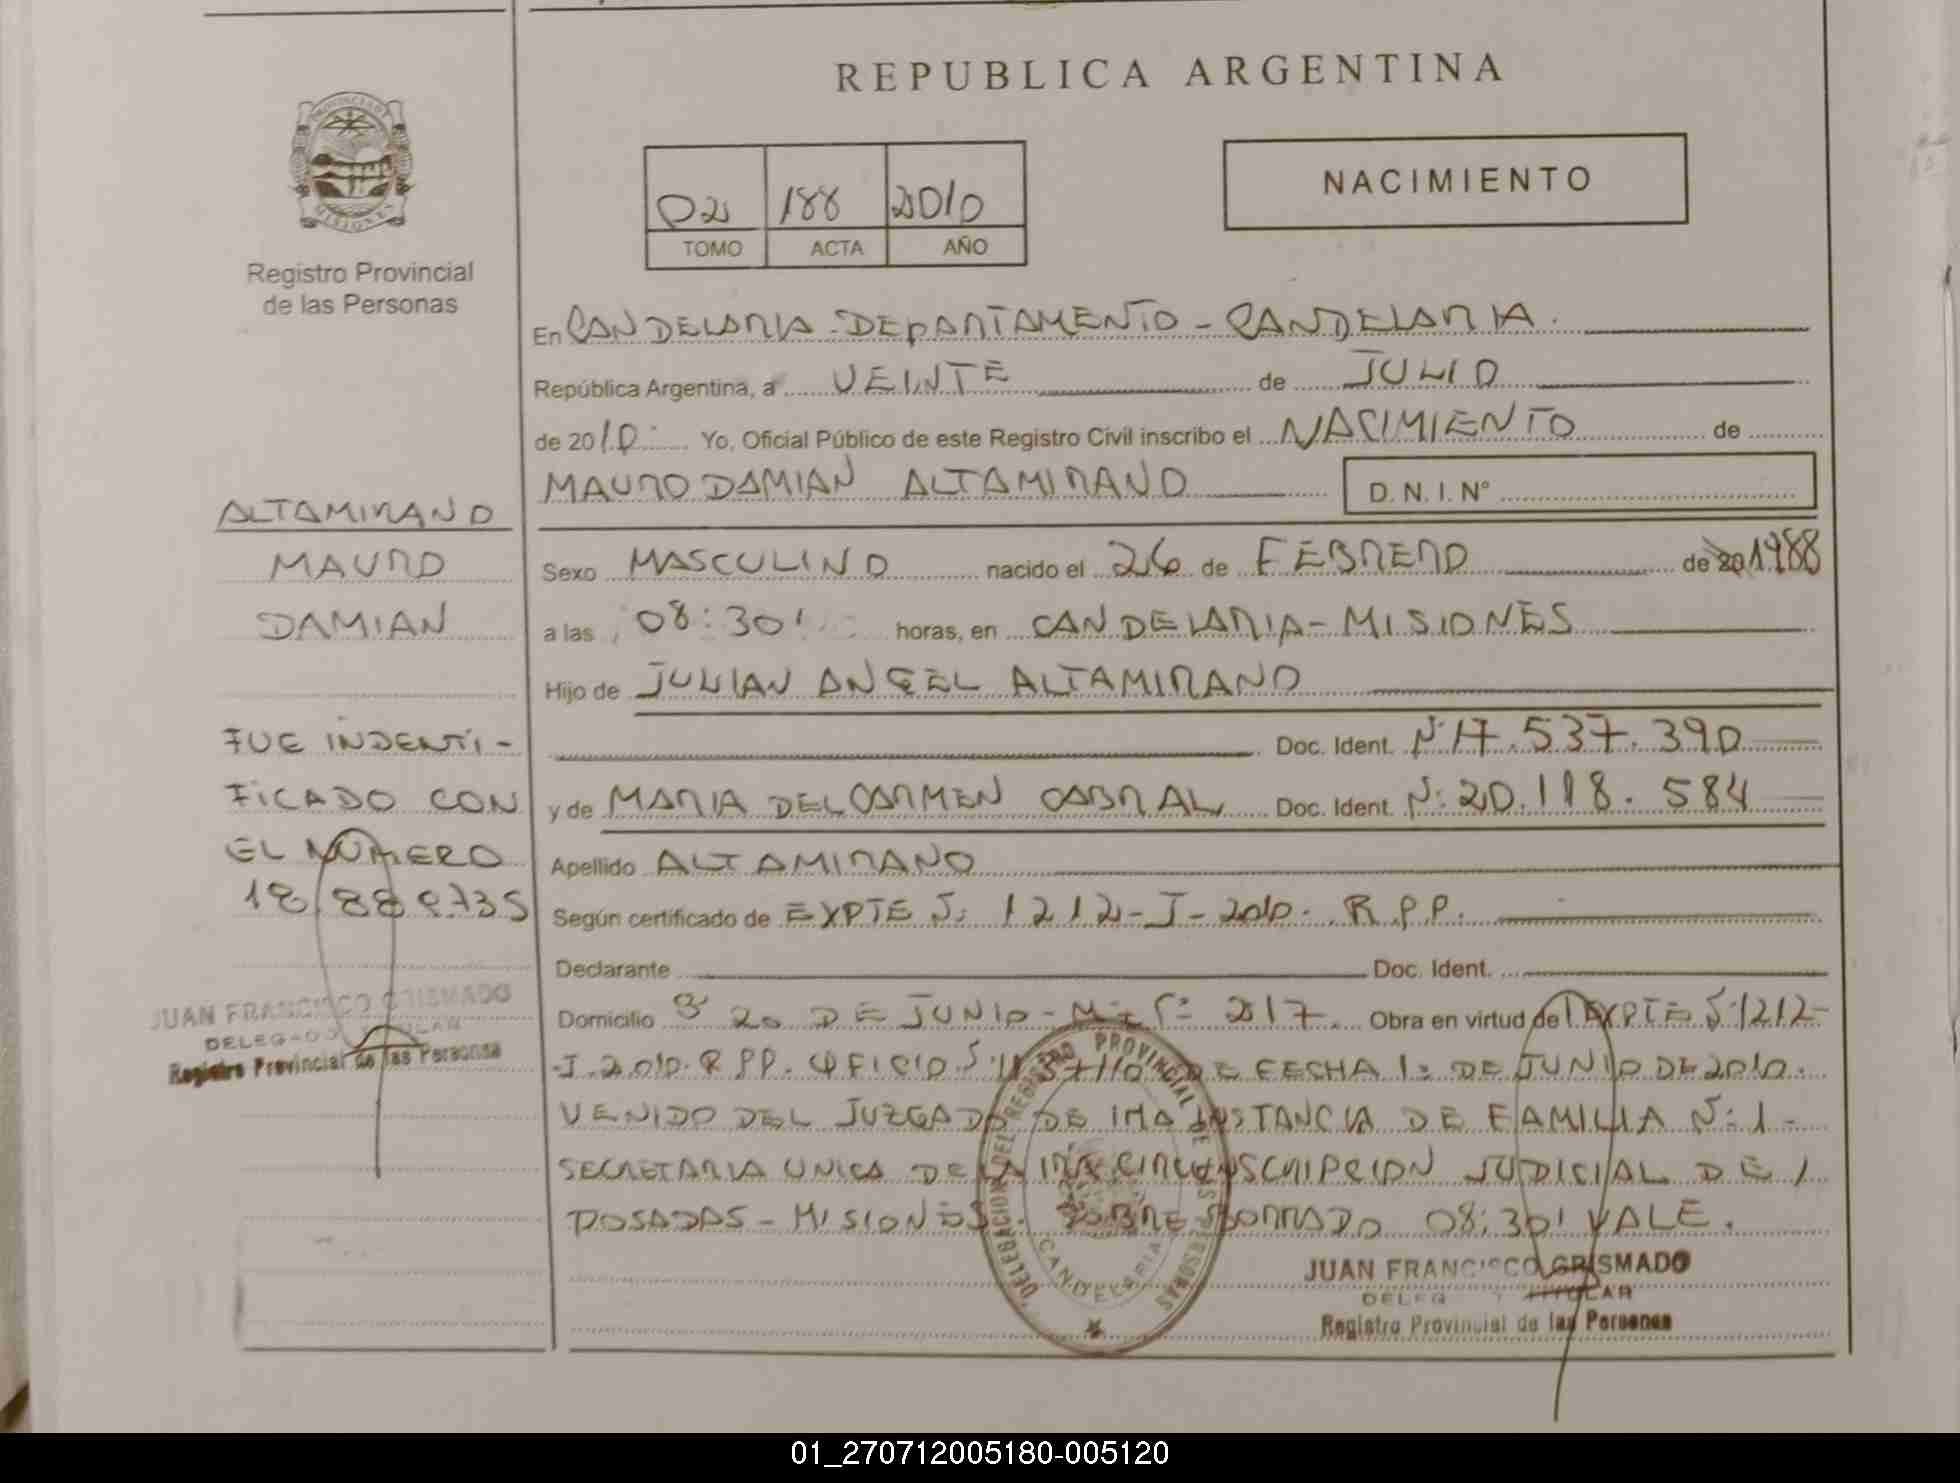 REPUBLICA ARGENTINA
PROVINCIA DE
MISIONES
Registro Provincial
de las Personas
02 188 2010
TOMO ACTA AÑO
NACIMIENTO
En CANDELARIA - DEPARTAMENTO - CANDELARIA.
República Argentina, a VEINTE de JULIO
de 2010 Yo, Oficial Público de este Registro Civil inscribo el NACIMIENTO de
MAURO DAMIAN ALTAMIRANO D. N. I. Nº
Sexo MASCULINO nacido el 26 de FEBRERO de 1988
a las 08:30' horas, en CANDELARIA - MISIONES
Hijo de JULIAN ANGEL ALTAMIRANO
Doc. Ident. Nº 17.537.390
y de MARIA DEL CARMEN CABRAL Doc. Ident. Nº 20.118.584
Apellido ALTAMIRANO
Según certificado de EXPTE Nº 1212-J-2010. R.P.P.
Declarante Doc. Ident.
Domicilio Bº 20 DE JUNIO - Mz Cº 217. Obra en virtud de EXPTE Nº 1212-
J.2010.R.PP. OFICIO Nº DE FECHA 1º DE JUNIO DE 2010.
VENIDO DEL JUZGADO DE 1RA INSTANCIA DE FAMILIA Nº 1 -
SECRETARIA UNICA DE LA 1RA CIRCUNSCRIPCION JUDICIAL DE
POSADAS - MISIONES. SOBRE BORRADO 08:30' VALE.
ALTAMIRANO
MAURO
DAMIAN
FUE INDENTI-
FICADO CON
EL NUMERO
18.889.735
JUAN FRANCISCO GRISMADO
DELEGADO TITULAR
Registro Provincial de las Personas
DELEGACION DEL REGISTRO PROVINCIAL DE LAS PERSONAS
CANDELARIA
JUAN FRANCISCO GRISMADO
DELEG TITULAR
Registro Provincial de las Personas
01_270712005180-005120